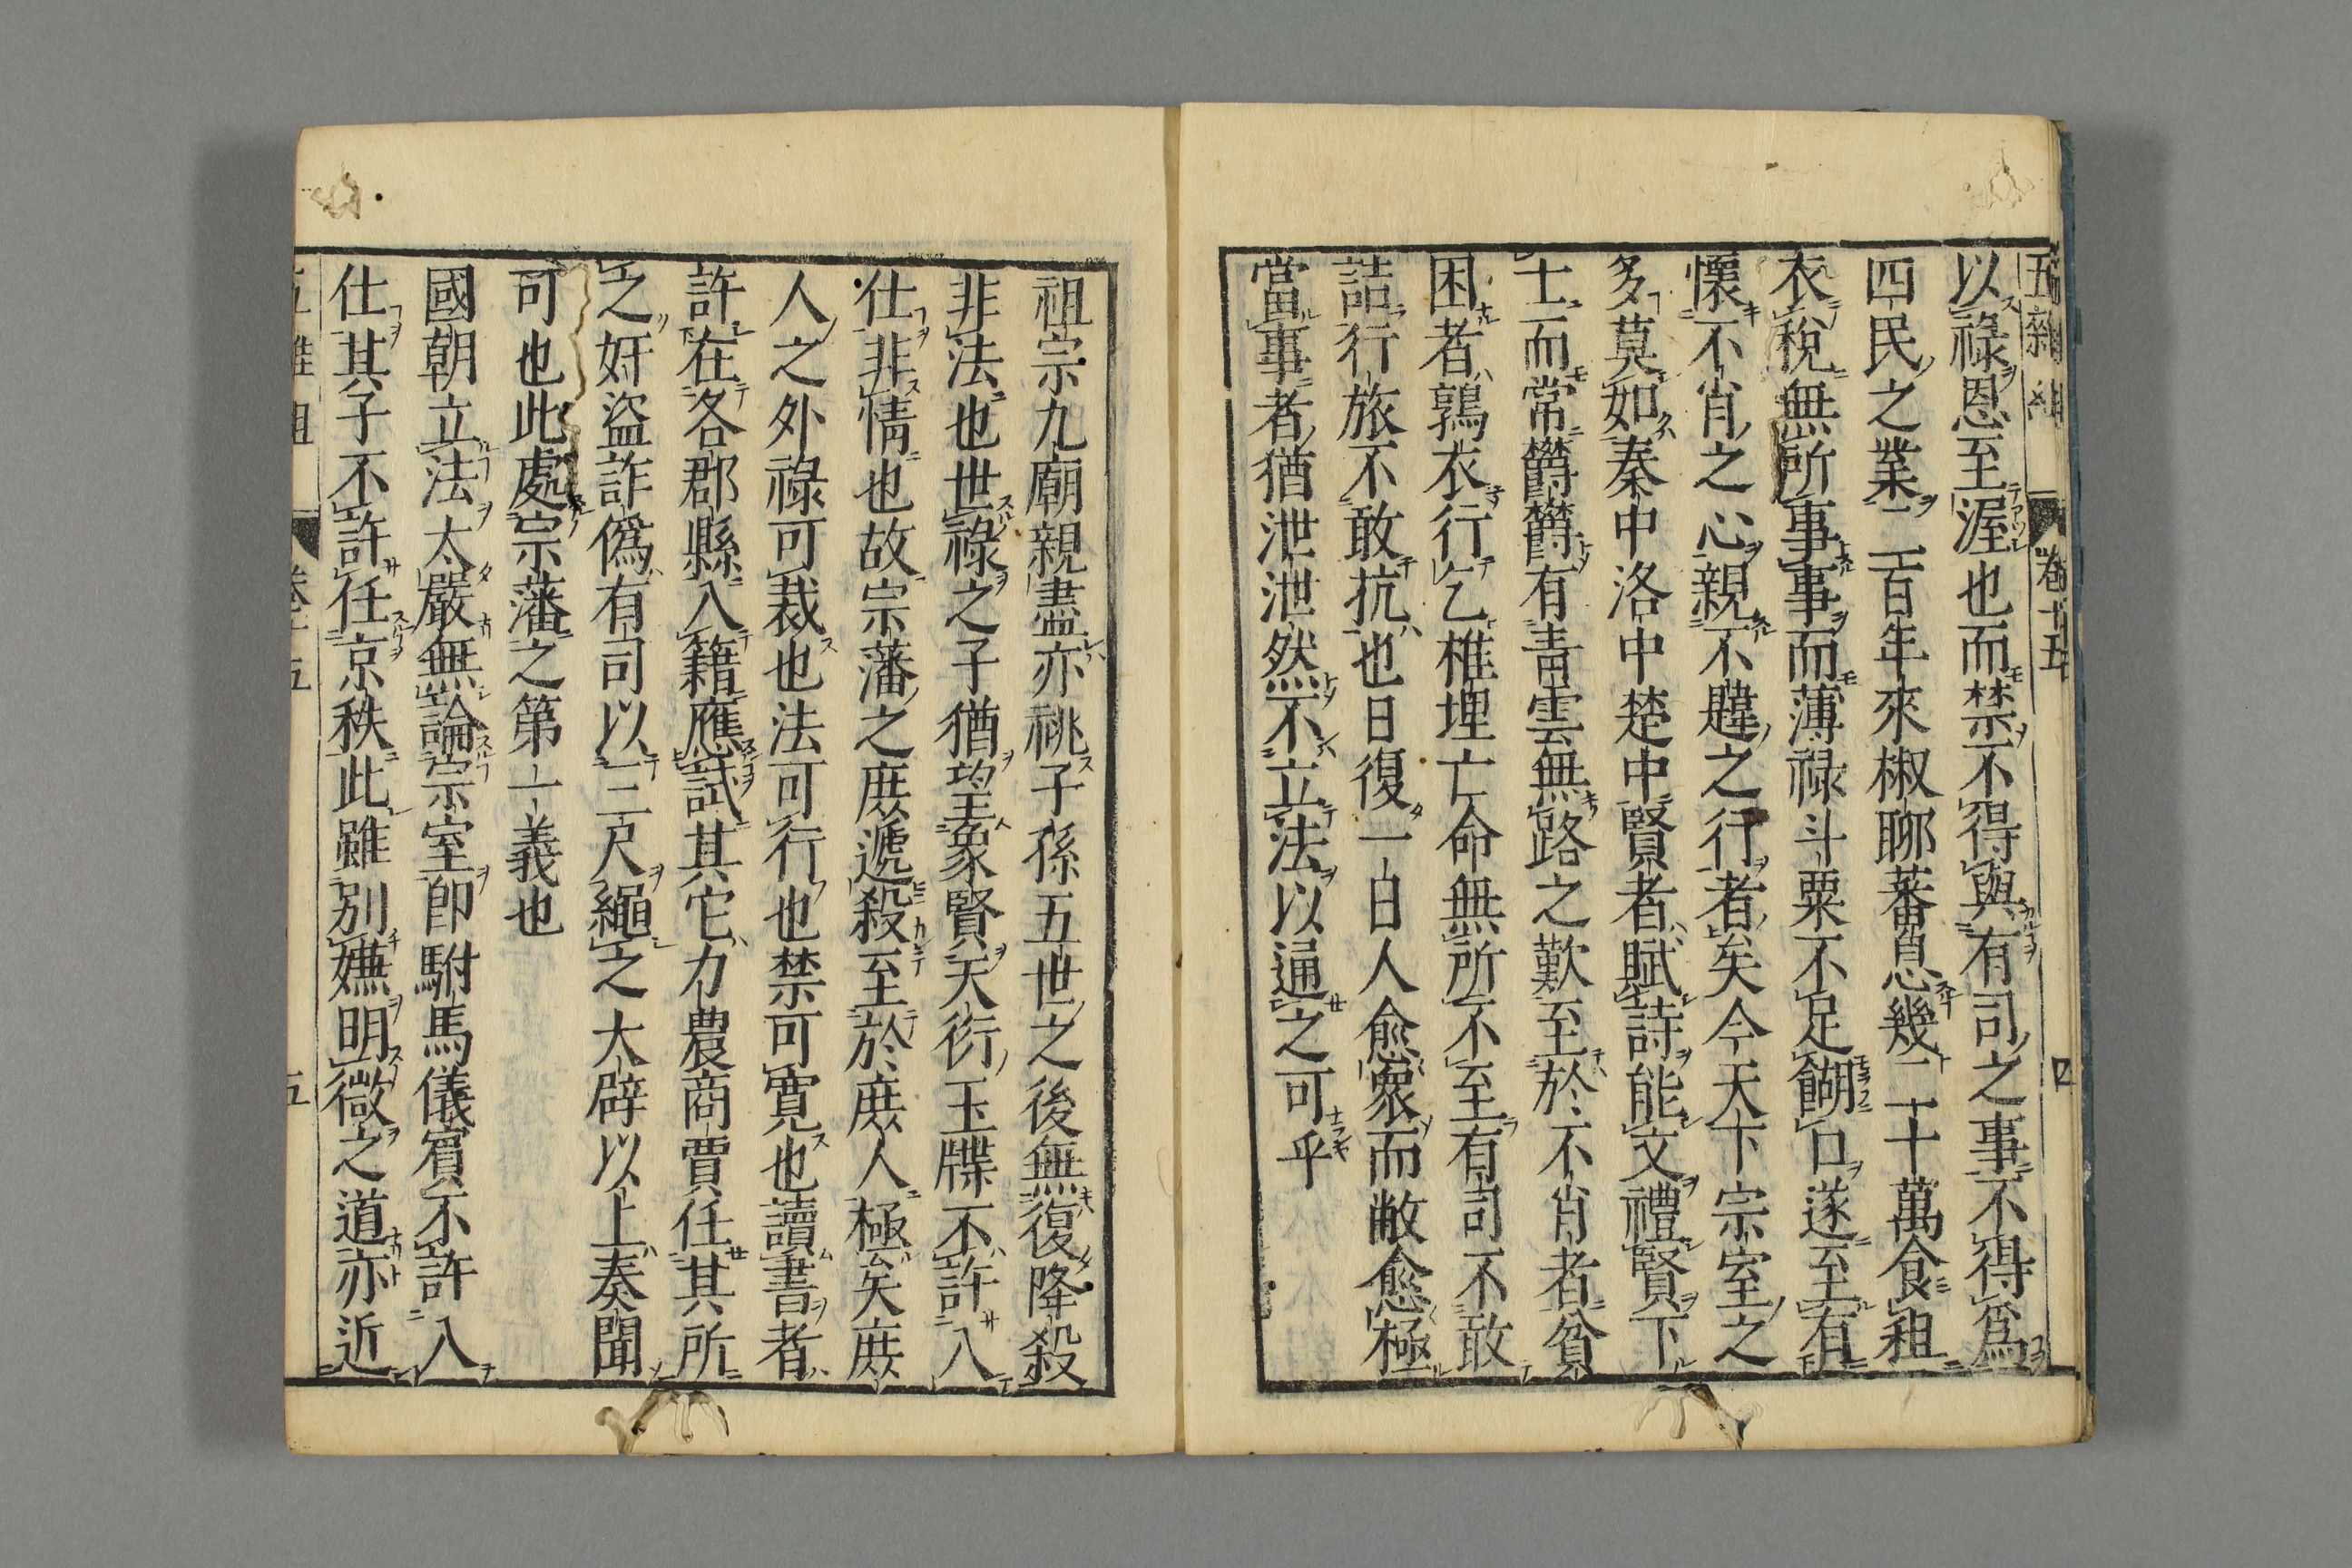 五雜組 卷十五 四
以祿恩至渥也而禁不得與有司之事不得爲
四民之業二百年來椒聊蕃息幾二十萬食租
衣稅無所事事而薄祿斗粟不足餬口遂至有
懷不肖之心親不韙之行者矣今天下宗室之
多莫如秦中洛中楚中賢者賦詩能文禮賢下
士而常欝欝有青雲無路之歎至於不肖者貧
困者鶉衣行乞椎埋亡命無所不至有司不敢
詰行旅不敢抗也日復一日人愈衆而敝愈極
當事者猶泄泄然不立法以通之可乎
祖宗九廟親盡亦祧子孫五世之後無復降殺
非法也世祿之子猶望象賢天衍玉牒不許入
仕非情也故宗藩之庶遞殺至於庶人極矣庶
人之外祿可裁也法可行也禁可寛也讀書者
許在各郡縣入籍應試其它力農商賈任其所
之奸盜詐僞有司以三尺繩之大辟以上奏聞
可也此處宗藩之第一義也
國朝立法太嚴無論宗室即駙馬儀賓不許入
仕其子不許任京秩此雖別嫌明微之道亦近
五雜組 卷十五 五